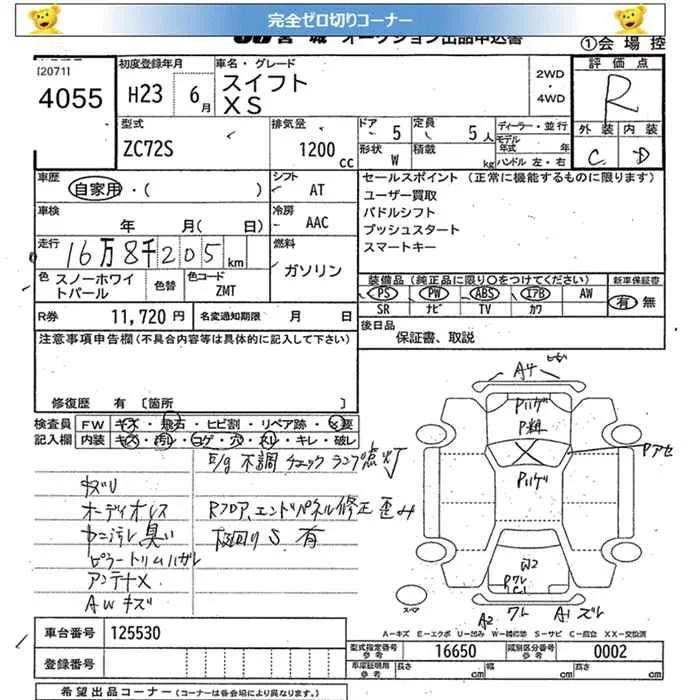 完全ゼロ切りコーナー
宮城 オークション出品申込書 ①会場控
[2071] 初度登録年月 車名・グレード 2WD・4WD 評価点
4055 H23 6月 スイフト XS R
型式 排気量 ドア 5 定員 5人 ディーラー・並行 外装 内装
ZC72S 1200cc 形状 W 積載 kg モデル年式 年 ハンドル 左・右 C D
車歴 自家用・( ) シフト AT セールスポイント (正常に機能するものに限ります)
ユーザー買取
パドルシフト
プッシュスタート
スマートキー
車検 年 月( 日) 冷房 AAC
走行 16万8千205km 燃料 ガソリン
色 スノーホワイトパール 色替 色コード ZMT
装備品 (純正品に限り○をつけてください) 新車保証書
PS PW ABS エアB AW 有 無
SR ナビ TV カワ
R券 11,720円 名変通知期限 月 日
後日品 保証書、取説
注意事項申告欄(不具合内容等は具体的に記入して下さい)
修復歴 有 [箇所 ]
検査員記入欄 FW キズ・飛石・ヒビ割・リペア跡・X要
内装 キズ・汚れ・コゲ・穴・スレ・キレ・破レ
E/g 不調 チェックランプ点灯
オーディオレス
Rフロア、エンドパネル修正歪み
臭い
下回りS有
ピラートリムハガレ
アンテナX
AWキズ
A4
Pハゲ
X
Pアセ
Pハゲ
W2
スペア
A2 ワレ A1 ズレ
A-キズ E-エクボ U-凹み W-補修跡 S-サビ C-腐食 XX-交換済
車台番号 125530
登録番号
型式指定番号 参考 16650 類別区分番号 参考 0002
車庫証明用 参考 長さ cm 幅 cm 高さ cm
希望出品コーナー (コーナーは各会場により異なります。)